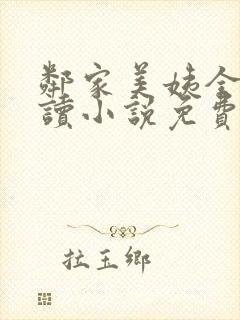 鄰家美姨全
讀小說免費
拉玉鄉